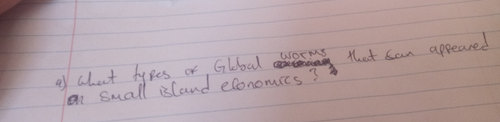 a) what types of Global worms that can appeared
on small island economics?